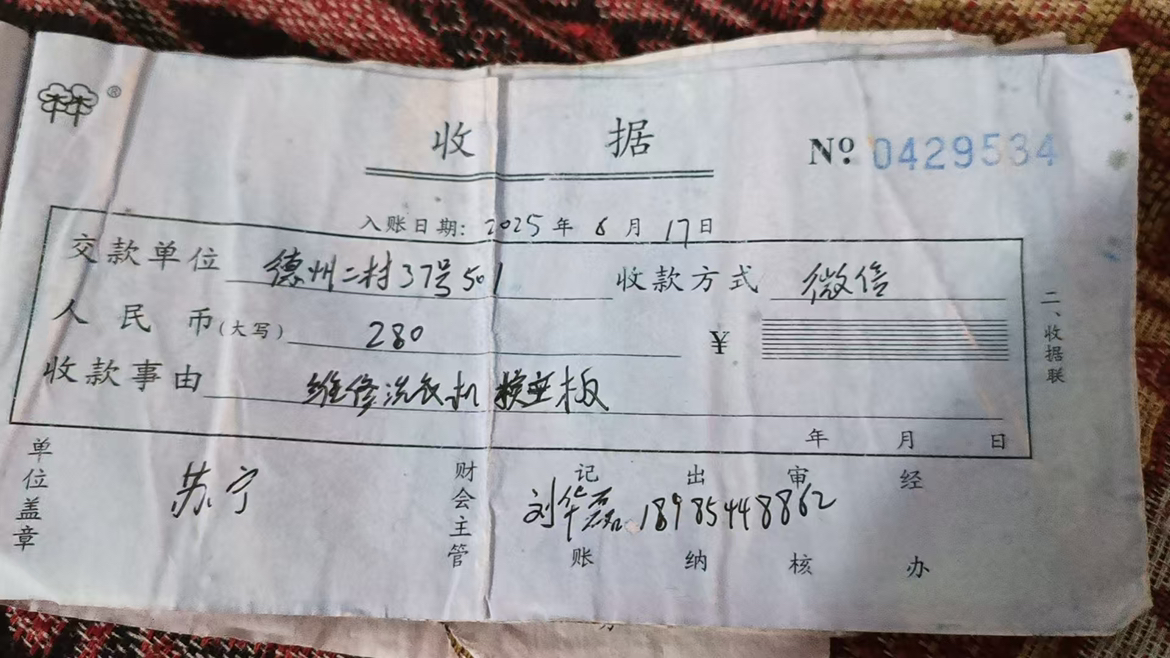 ®
收据
№ 0429534
入账日期: 2025年6月17日
交款单位 德州二村37号501 收款方式 微信
人民币(大写) 280 ¥
收款事由 维修洗衣机 板
年 月 日
二、收据联
单位盖章 苏宁
财会主管
记账 出纳 审核 经办
刘华磊 18985448862